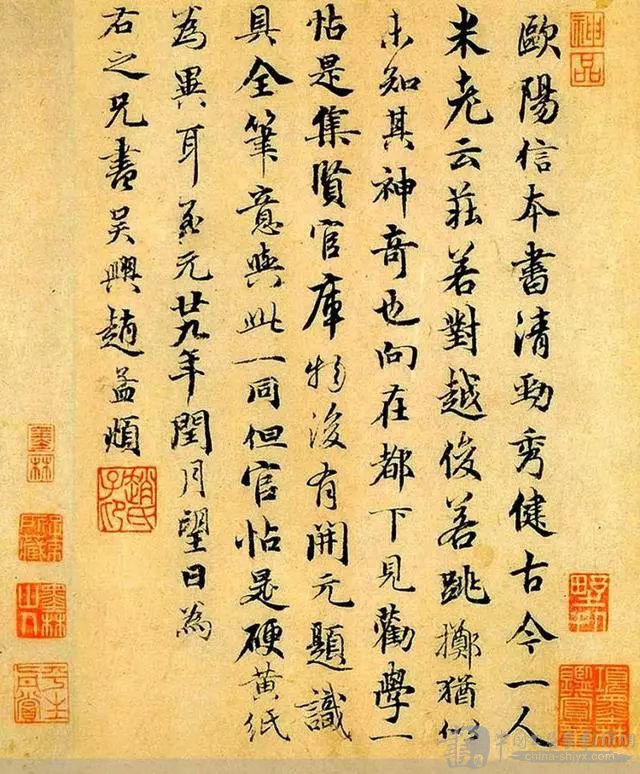 神品
歐陽信本書清勁秀健古今一人
米老云莊若對越俊若跳擲猶似
未知其神奇也向在都下見勸學一
帖是集賢官庫物後有開元題識
具全筆意與此一同但官帖是硬黃紙
為異耳至元廿九年閏月望日為
右之兄書吳興趙孟頫
趙氏子昂
墨林
china-shjyx.com